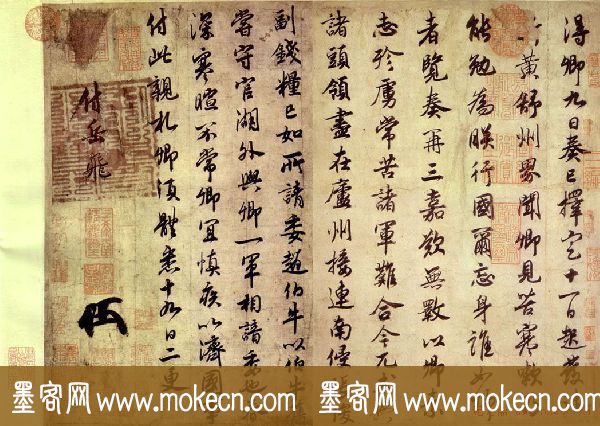 得卿九日奏已擇定十一日起發
黃舒州界聞卿見苦寒嗽
能勉為朕行國爾忘身誰如卿
者覽奏再三嘉歎無斁以卿素
志殄虜常苦諸軍難合今兀
諸頭領盡在廬州接連南侵
副錢糧已如所請委趙伯牛以伯牛舊
嘗守官湖外與卿一軍相諳委也
深寒暄不常卿宜慎疾以濟國事
付此親札卿須體悉十九日二更
付岳飛
墨客网 www.mokecn.com 墨客网 www.mokecn.com